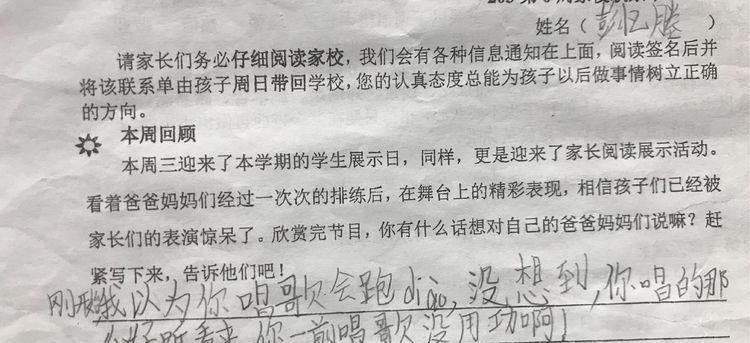 姓名（彭忆滕）
请家长们务必仔细阅读家校，我们会有各种信息通知在上面，阅读签名后并
将该联系单由孩子周日带回学校，您的认真态度总能为孩子以后做事情树立正确
的方向。
本周回顾
本周三迎来了本学期的学生展示日，同样，更是迎来了家长阅读展示活动。
看着爸爸妈妈们经过一次次的排练后，在舞台上的精彩表现，相信孩子们已经被
家长们的表演惊呆了。欣赏完节目，你有什么话想对自己的爸爸妈妈们说嘛？赶
紧写下来，告诉他们吧！
刚我以为你唱歌会跑diào，没想到，你唱的那
你前唱歌没用功啊！